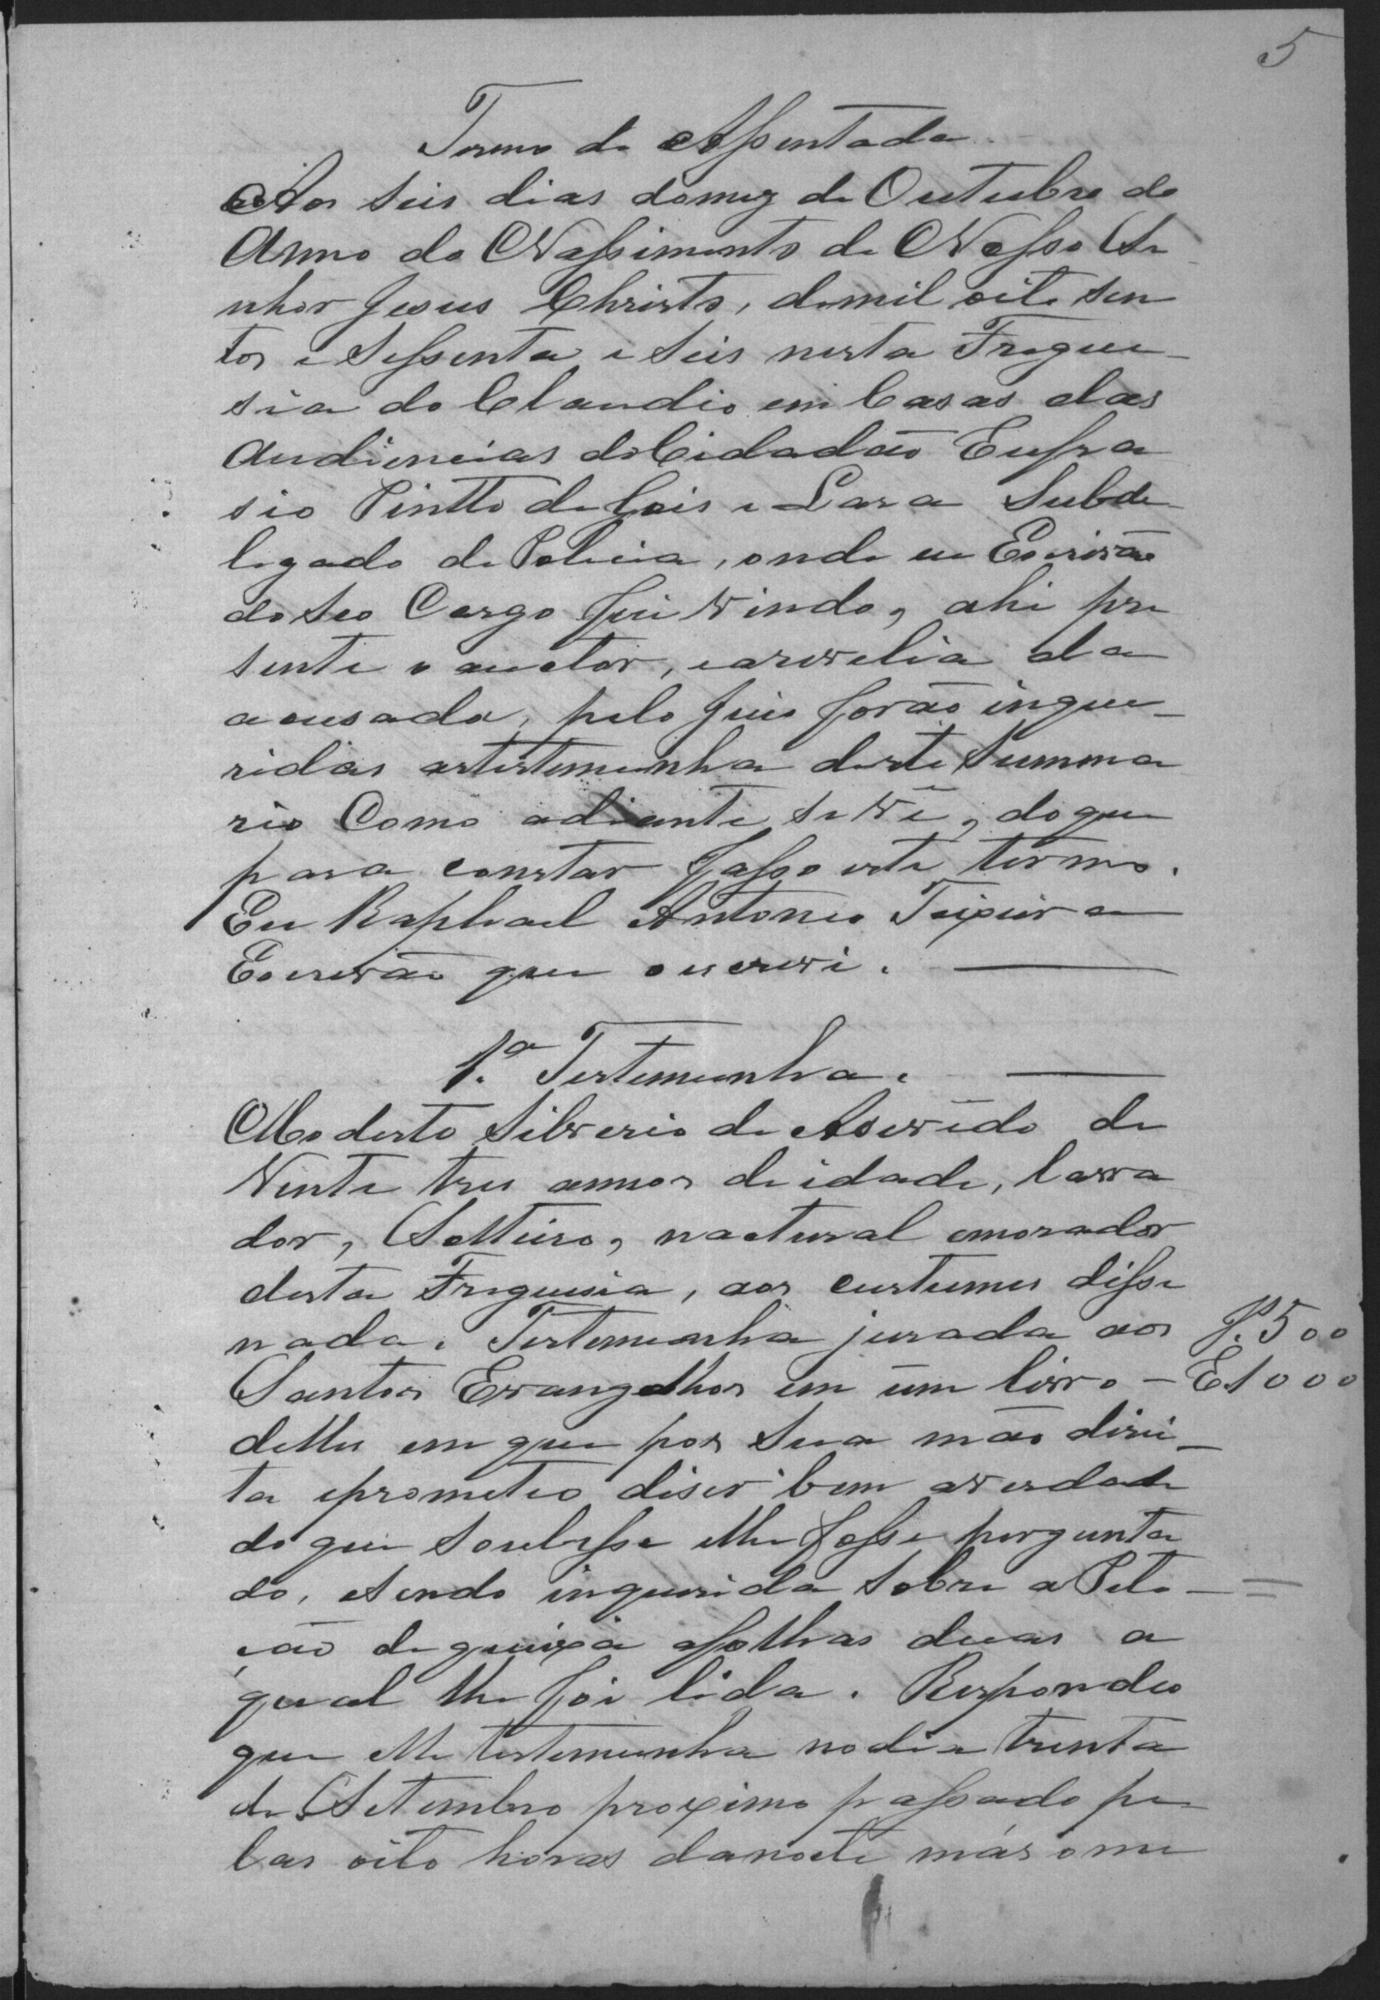 5
Termo de Assentada
Aos seis dias do mez de Outubro do
Anno do Nassimento de Nosso Se
nhor Jesus Christo, de mil oito sen
tos e sessenta e seis nesta Fregue-
sia do Claudio em Casas das
Audiencias do Cidadão Eufra
sio Pintto de Gois e Lara Subde
legado de Policia, onde eu Escrivão
do seo Cargo fui vindo, ahi pre
sente o auctor, e a revelia da
acusada, pelo Juis forão inque-
ridas as testemunha deste Summa
rio Como adiante se vê, do que
para constar fasso este termo.
Eu Raphael Antonio Teixeira
Escrivão que o escrevi.
1.ª Testemunha.
Modesto Silverio de Asevêdo de
Vinte tres annos de idade, lavra
dor, Soltteiro, nactural e morador
desta Freguesia, aos custumes disse
nada. Testemunha jurada aos
J. 500
Santos Evangelhos em um livro -
E. 1000
delles em que pos sua mão direi-
ta e prometeo diser bem a verdade
do que soubesse e lhe fosse pergunta
do, e sendo inquirida sobre a Peti-
ção de queixa a folhas duas a
qual lhe foi lida. Respondeo
que elle testemunha no dia trinta
de Setembro proximo passado pe
las oito horas da noite más o me